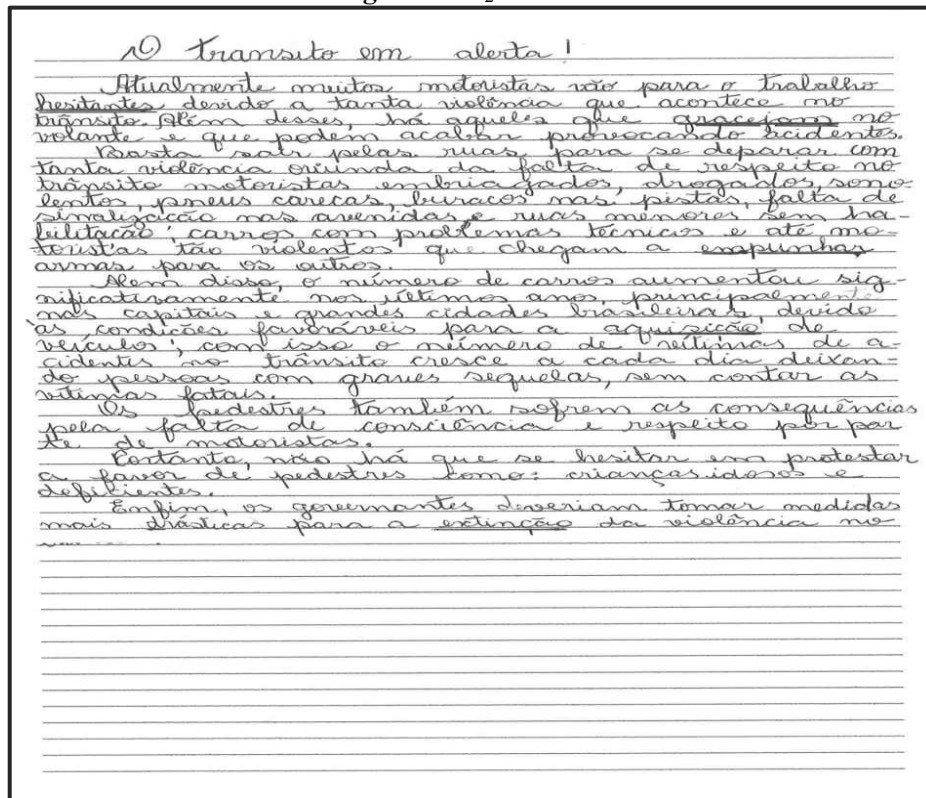 O transito em alerta!
Atualmente muitos motoristas vão para o trabalho
hesitantes devido a tanta violência que acontece no
trânsito. Além desses, há aqueles que gracejam no
volante e que podem acabar provocando acidentes.
Basta sair pelas ruas para se deparar com
tanta violência oriunda da falta de respeito no
trânsito motoristas embriagados, drogados, sono-
lentos, pneus carecas, buracos nas pistas, falta de
sinalização nas avenidas e ruas, menores sem ha-
bilitação; carros com problemas técnicos e até mo-
toristas tão violentos que chegam a empunhar
armas para os outros.
Alem disso, o número de carros aumentou sig-
nificativamente nos últimos anos, principalmente
nas capitais e grandes cidades brasileiras, devido
às condições favoráveis para a aquisição de
veículos; com isso o número de vítimas de a-
cidentes no trânsito cresce a cada dia deixan-
do pessoas com graves sequelas, sem contar as
vítimas fatais.
Os pedestres também sofrem as consequências
pela falta de consciência e respeito por par
te de motoristas.
Portanto, não há que se hesitar em protestar
a favor de pedestres como: crianças idosos e
deficientes.
Enfim, os governantes deveriam tomar medidas
mais drásticas para a extinção da violência no